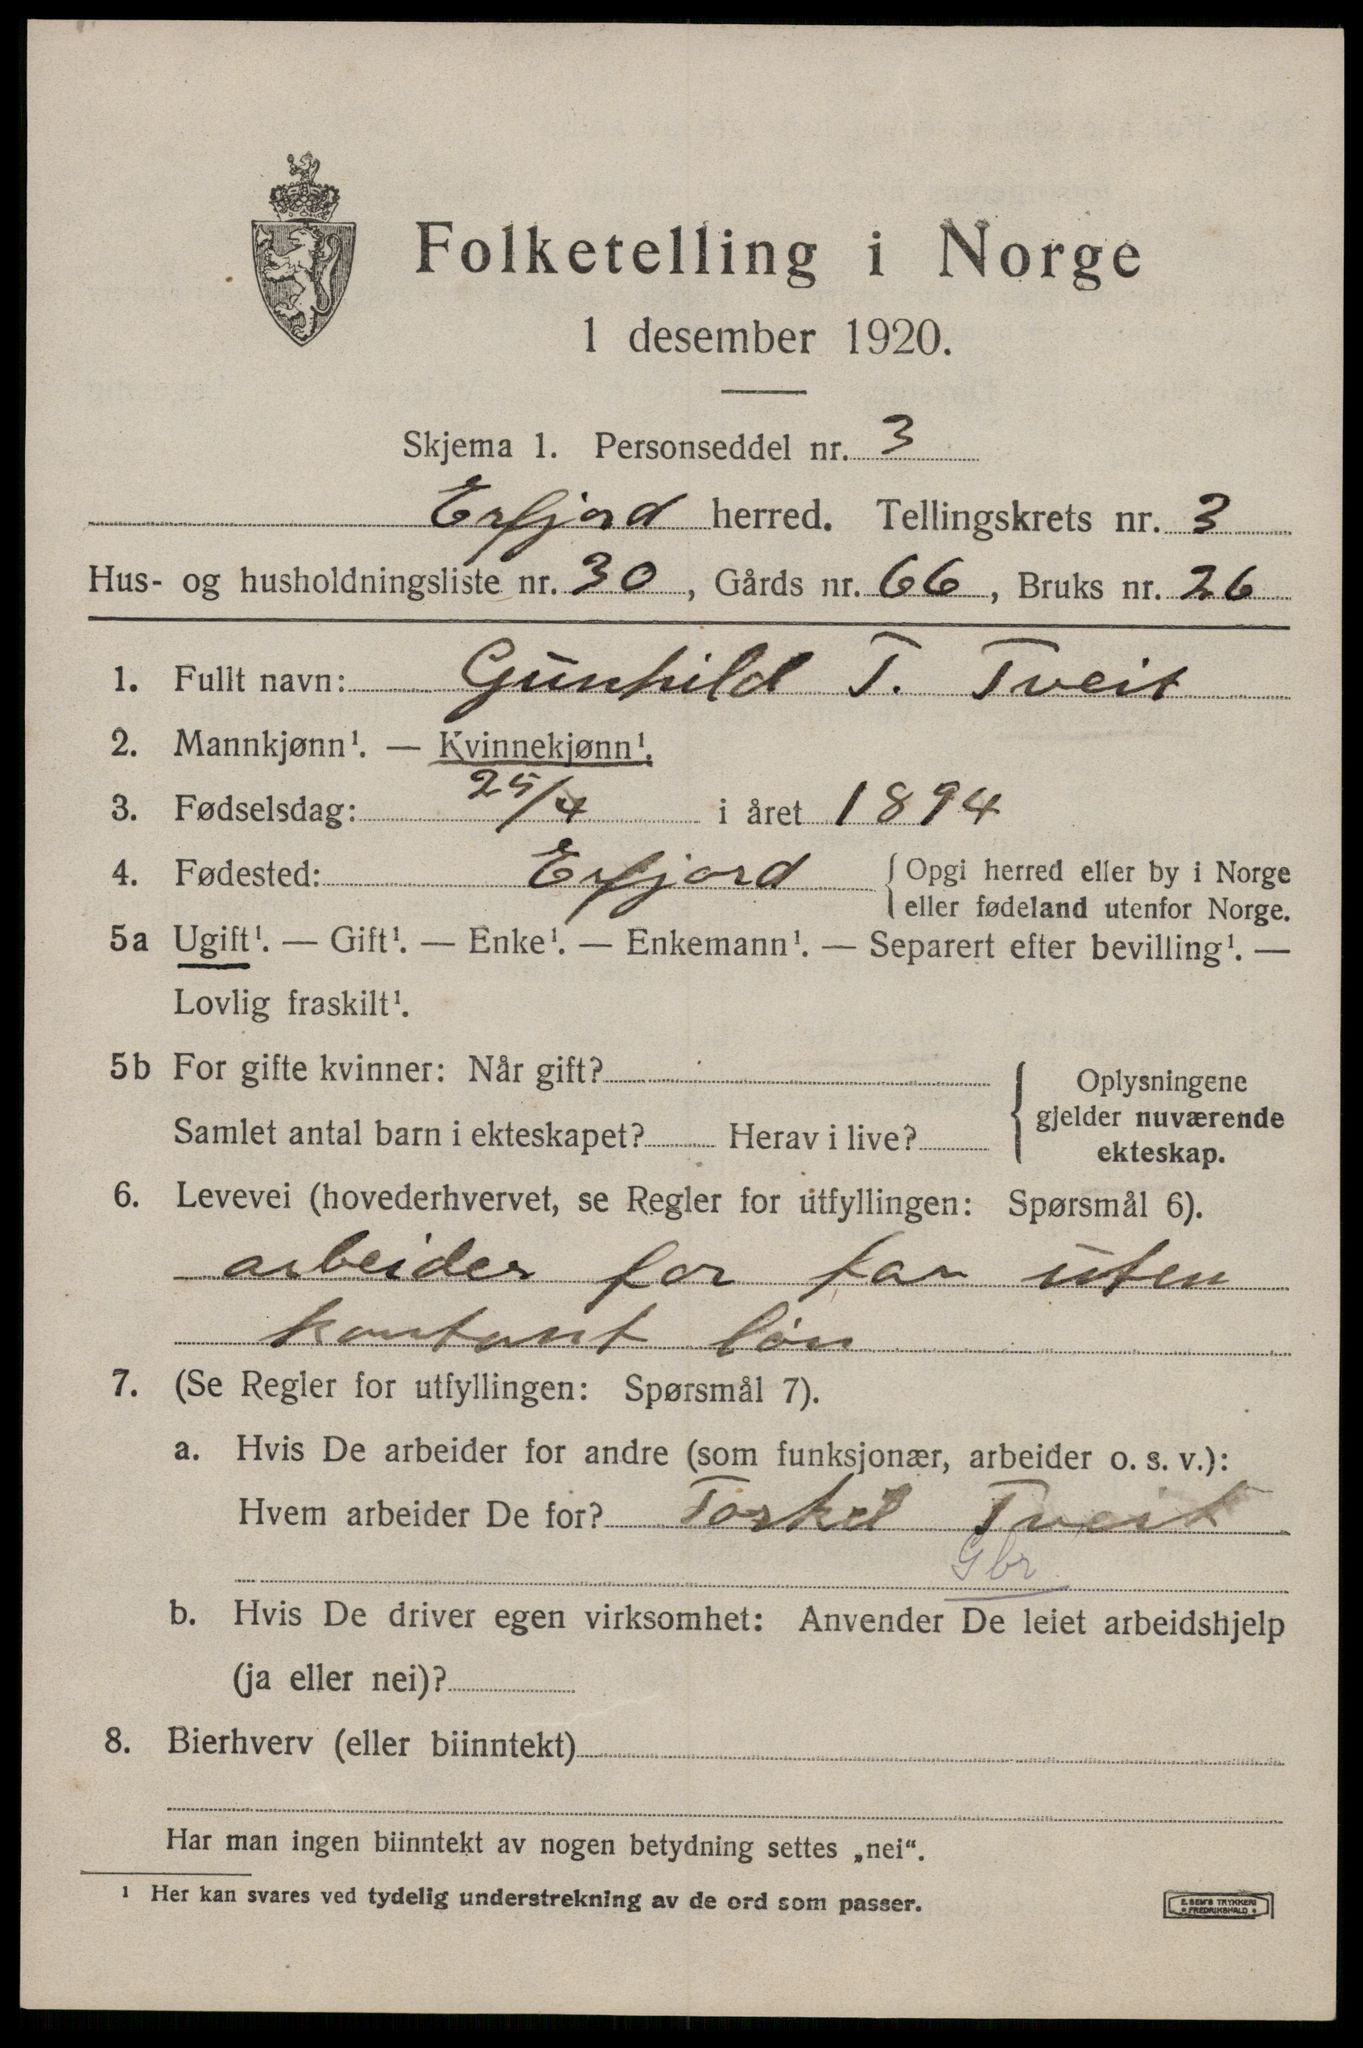 Folketelling i Norge
1 desember 1920.
Skjema 1. Personseddel nr. 3
Erfjord herred. Tellingskrets nr. 3
Hus- og husholdningsliste nr. 30, Gårds nr. 66, Bruks nr. 26
1. Fullt navn: Gunhild T. Tveit
2. Mannkjønn¹. — Kvinnekjønn¹.
3. Fødselsdag: 25/4 i året 1894
4. Fødested: Erfjord { Opgi herred eller by i Norge
eller fødeland utenfor Norge.
5a Ugift¹. — Gift¹. — Enke¹. — Enkemann¹. — Separert efter bevilling¹. —
Lovlig fraskilt¹.
5b For gifte kvinner: Når gift?
Samlet antal barn i ekteskapet? Herav i live?
Oplysningene
gjelder nuværende
ekteskap.
6. Levevei (hovederhvervet, se Regler for utfyllingen: Spørsmål 6).
arbeider for far uten
kontant løn
7. (Se Regler for utfyllingen: Spørsmål 7).
a. Hvis De arbeider for andre (som funksjonær, arbeider o. s. v.):
Hvem arbeider De for? Torkel Tveit
Gbr
b. Hvis De driver egen virksomhet: Anvender De leiet arbeidshjelp
(ja eller nei)?
8. Bierhverv (eller biinntekt)
Har man ingen biinntekt av nogen betydning settes „nei“.
¹ Her kan svares ved tydelig understrekning av de ord som passer.
E. SEM'S TRYKKERI
FREDRIKSHALD